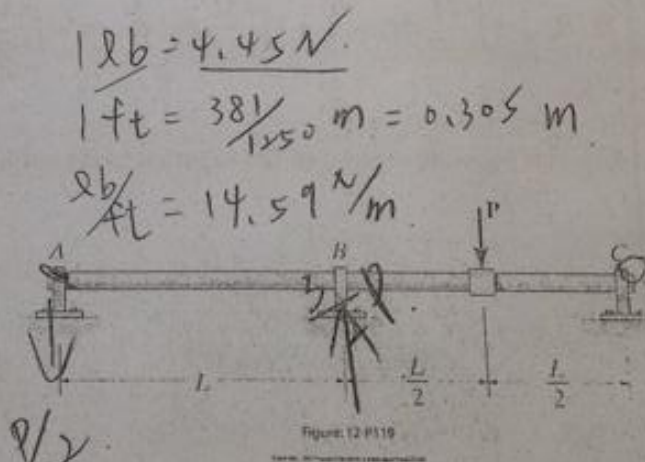 1 lb = 4.45 N.
1 ft = 381/1250 m = 0.305 m
lb/ft = 14.59 N/m
P
A B C
L L/2 L/2
P/2
Figure: 12-P119